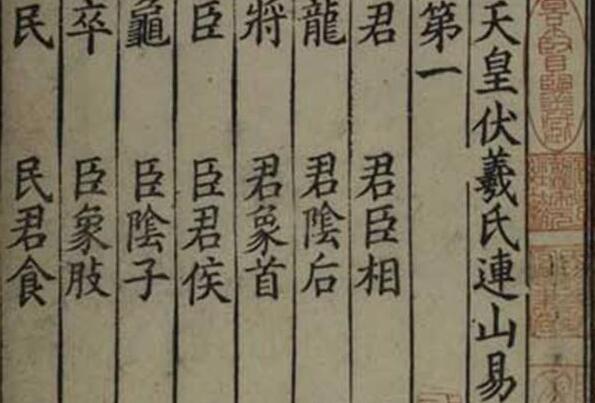 天皇伏羲氏連山易
第一
君 君臣相
龍 君陰后
將 君象首
臣 臣君侯
龜 臣陰子
卒 臣象肢
民 民君食